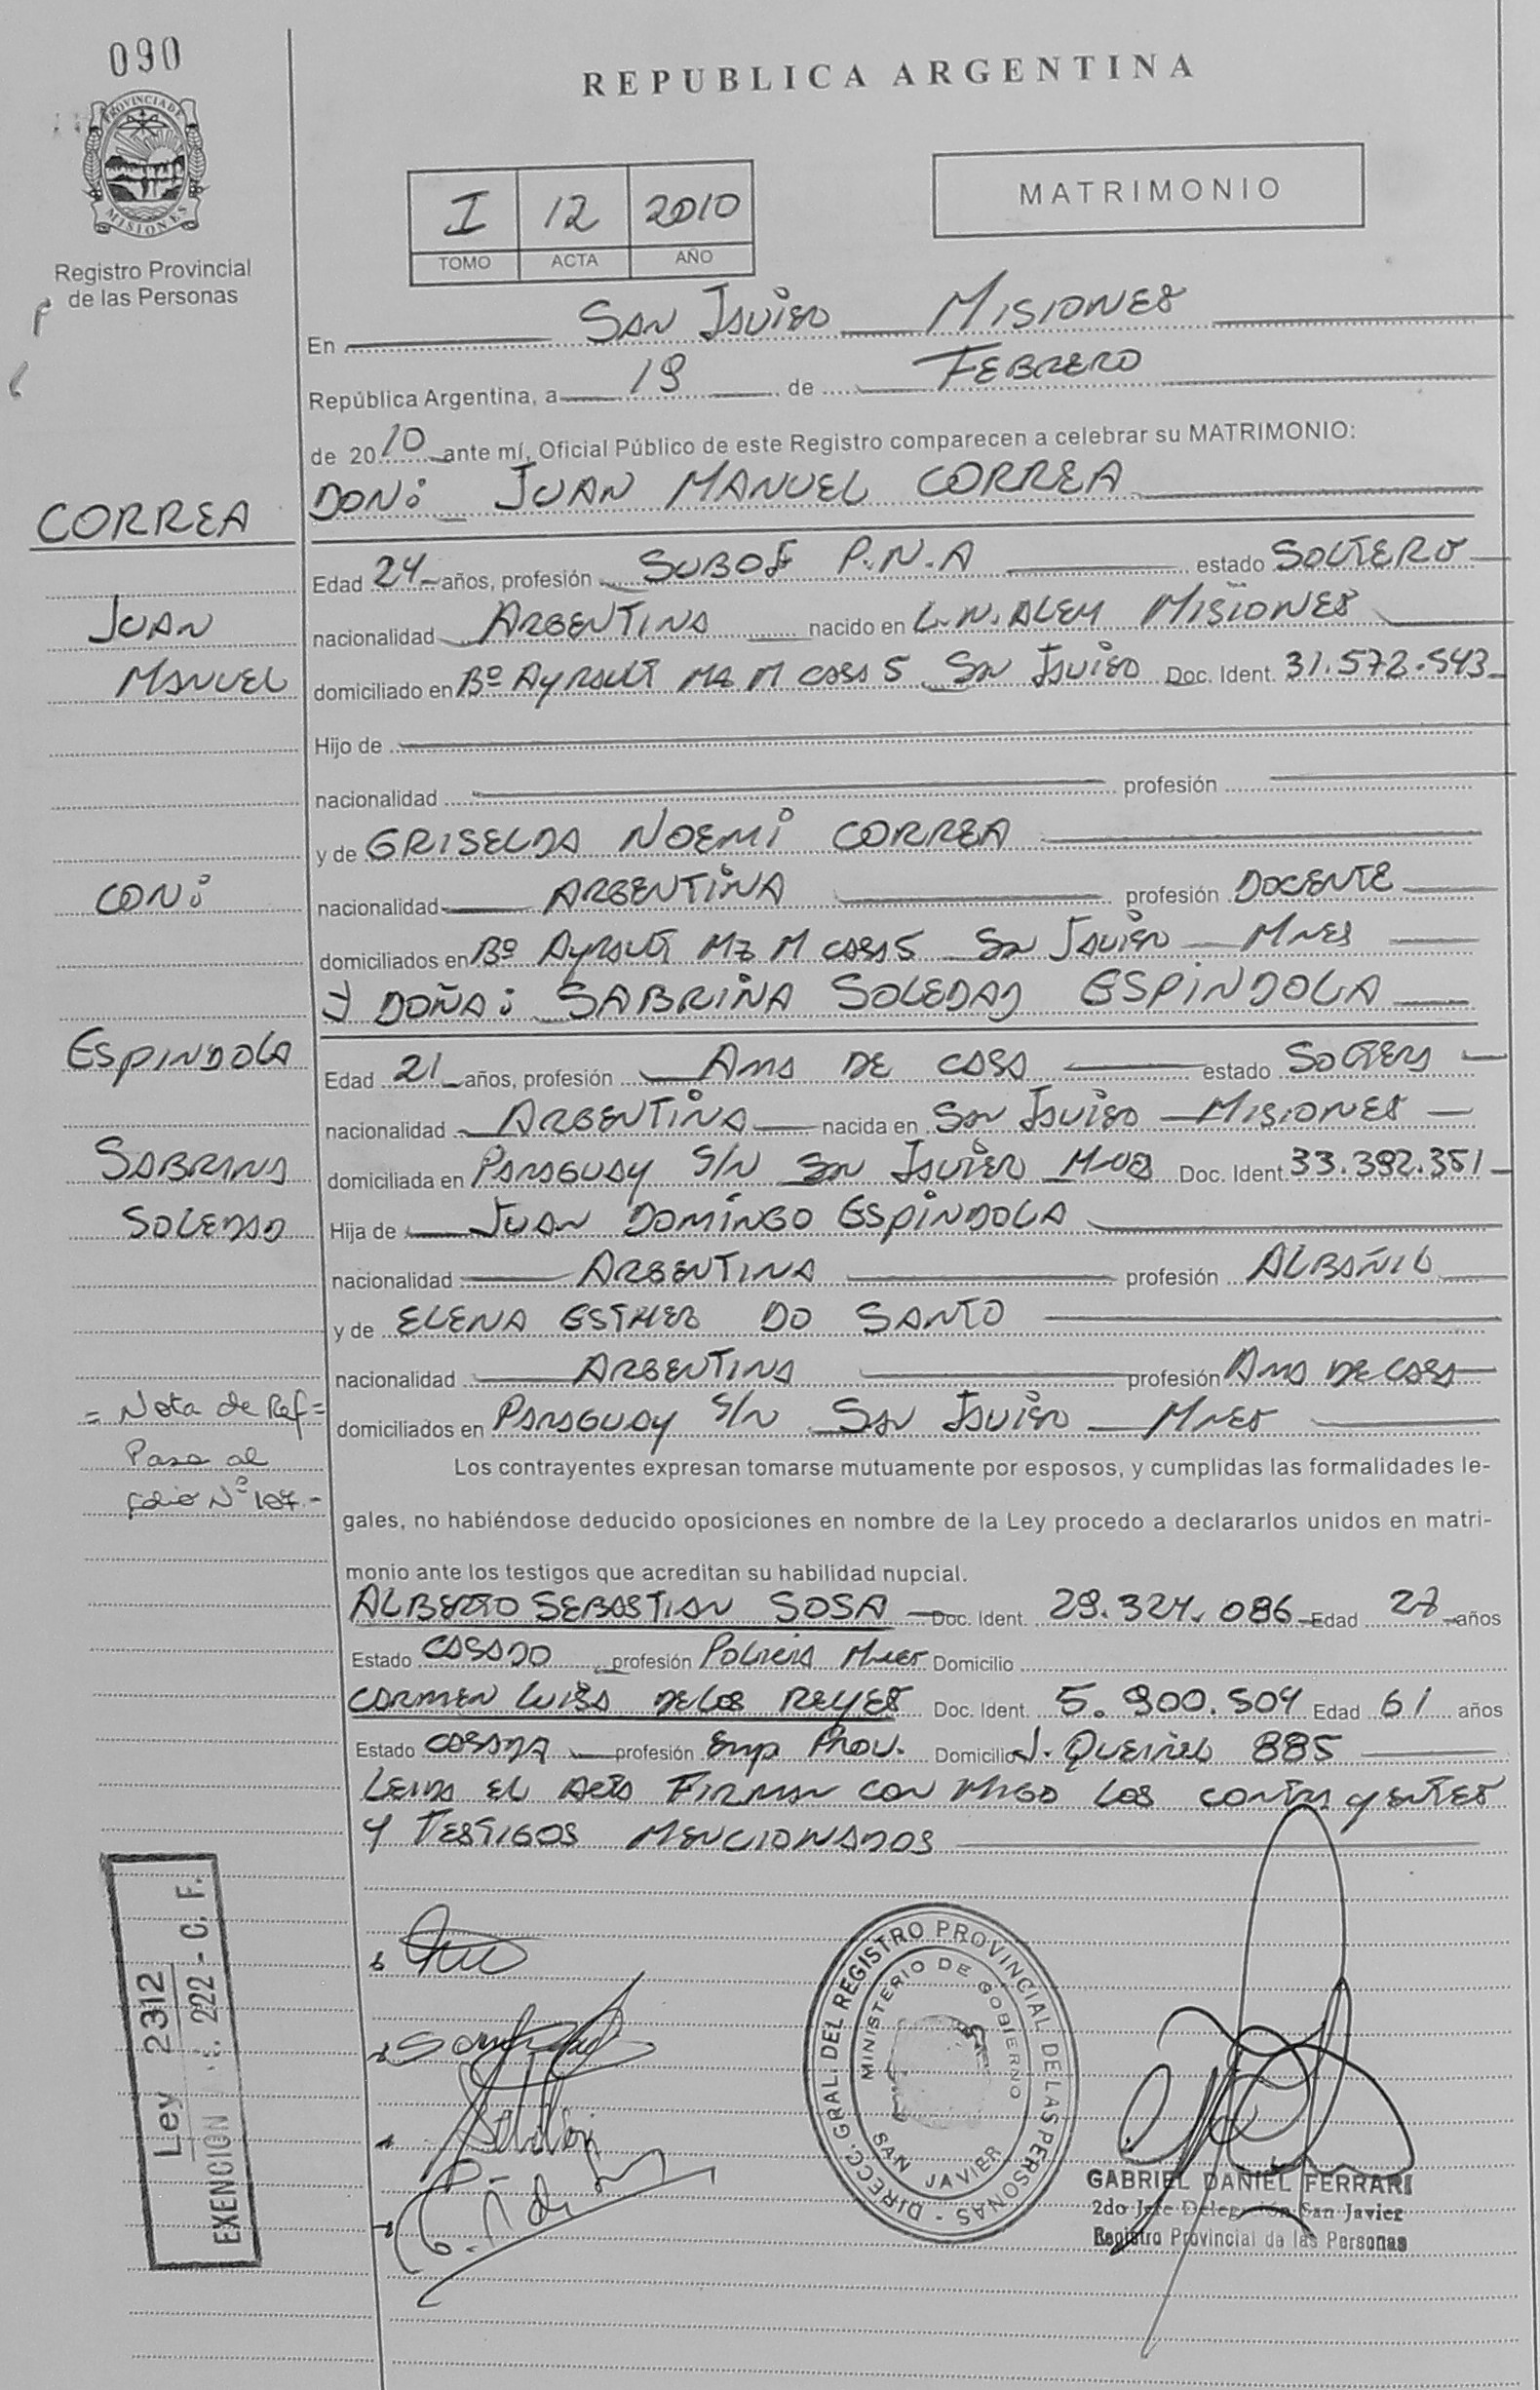 090
PROVINCIA DE
MISIONES
Registro Provincial
de las Personas
REPUBLICA ARGENTINA
I 12 2010
TOMO ACTA AÑO
MATRIMONIO
En SAN JAVIER MISIONES
República Argentina, a 19 de FEBRERO
de 2010 ante mí, Oficial Público de este Registro comparecen a celebrar su MATRIMONIO:
DON: JUAN MANUEL CORREA
CORREA
Edad 24 años, profesión SUBOF P.N.A estado SOLTERO
JUAN
nacionalidad ARGENTINA nacido en L.N. ALEM MISIONES
MANUEL
domiciliado en Bº AyRAULT MZ M CASA 5 SAN JAVIER Doc. Ident. 31.572.543
Hijo de
nacionalidad profesión
y de GRISELDA NOEMI CORREA
CON:
nacionalidad ARGENTINA profesión DOCENTE
domiciliados en Bº AyRAULT MZ M CASA 5 SAN JAVIER MNES
Y DOÑA: SABRINA SOLEDAD ESPINDOLA
ESPINDOLA
Edad 21 años, profesión AMA DE CASA estado SOLTERA
nacionalidad ARGENTINA nacida en SAN JAVIER MISIONES
SABRINA
domiciliada en PARAGUAY S/N SAN JAVIER MNES Doc. Ident. 33.392.351
SOLEDAD
Hija de JUAN DOMINGO ESPINDOLA
nacionalidad ARGENTINA profesión ALBAÑIL
y de ELENA ESTHER DO SANTO
nacionalidad ARGENTINA profesión AMA DE CASA
= Nota de Ref =
domiciliados en PARAGUAY S/N SAN JAVIER MNES
Pasa al
folio Nº 107.-
Los contrayentes expresan tomarse mutuamente por esposos, y cumplidas las formalidades le-
gales, no habiéndose deducido oposiciones en nombre de la Ley procedo a declararlos unidos en matri-
monio ante los testigos que acreditan su habilidad nupcial.
ALBERTO SEBASTIAN SOSA Doc. Ident. 29.324.086 Edad 27 años
Estado CASADO profesión POLICIA MNES Domicilio
CARMEN LUISA DE LOS REYES Doc. Ident. 5.900.504 Edad 61 años
Estado CASADA profesión Emp PROV. Domicilio J. QUEIREL 885
LEIDA EL ACTA FIRMAN CON MIGO LOS CONTRAYENTES
Y TESTIGOS MENCIONADOS
Ley 2312
EXENCION 222 - C. F.
DIRECC. GRAL. DEL REGISTRO PROVINCIAL DE LAS PERSONAS -
MINISTERIO DE GOBIERNO
SAN JAVIER
GABRIEL DANIEL FERRARI
2do Jefe Delegación San Javier
Registro Provincial de las Personas